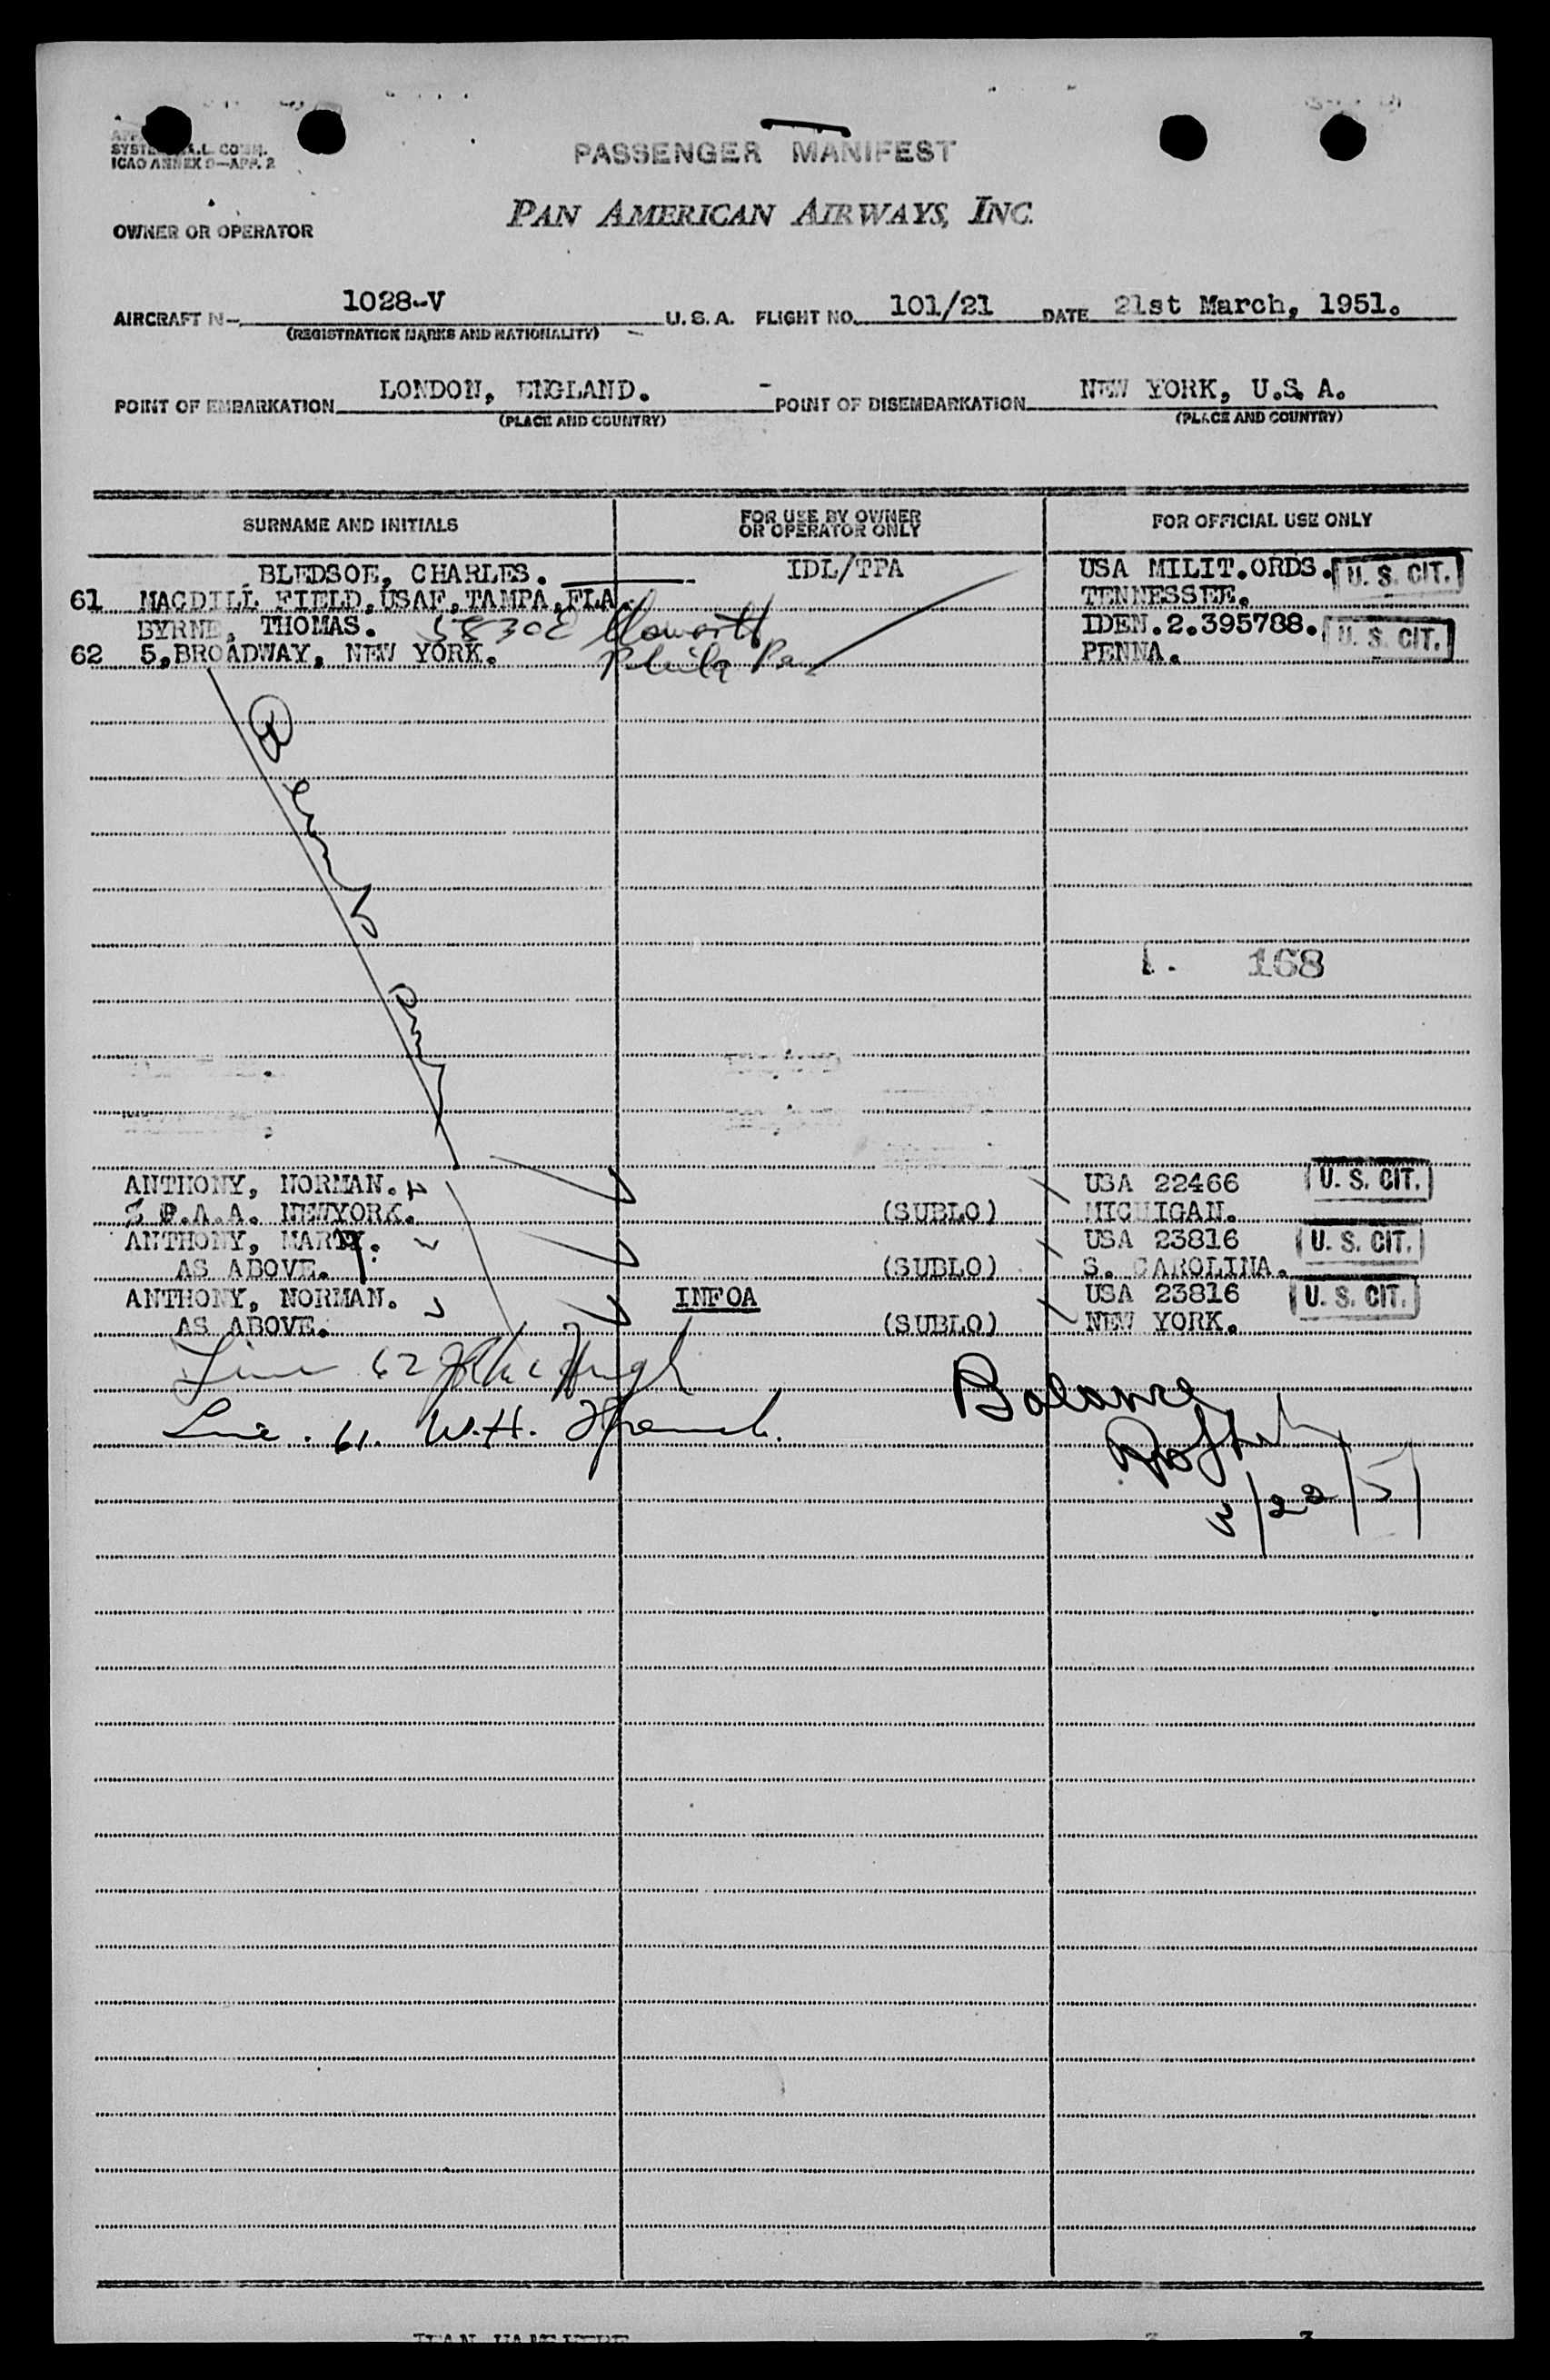 SYSTEM A.L. COMM.
ICAO ANNEX 9—APP. 2
PASSENGER MANIFEST
PAN AMERICAN AIRWAYS, INC.
OWNER OR OPERATOR
AIRCRAFT N- 1028-V U.S.A. FLIGHT NO. 101/21 DATE 21st March, 1951.
(REGISTRATION MARKS AND NATIONALITY)
POINT OF EMBARKATION LONDON, ENGLAND. - POINT OF DISEMBARKATION NEW YORK, U.S.A.
(PLACE AND COUNTRY) (PLACE AND COUNTRY)
SURNAME AND INITIALS FOR USE BY OWNER OR OPERATOR ONLY FOR OFFICIAL USE ONLY
BLEDSOE, CHARLES. IDL/TPA USA MILIT.ORDS. U. S. CIT.
61 MACDILL FIELD,USAF,TAMPA,FLA. TENNESSEE.
BYRNE, THOMAS. IDEN.2.395788. U. S. CIT.
62 5,BROADWAY, NEW YORK. Phila Pa PENNA.
168
ANTHONY, NORMAN. USA 22466 U. S. CIT.
P.A.A. NEWYORK. (SUBLO) MICHIGAN.
ANTHONY, MARY. USA 23816 U. S. CIT.
AS ABOVE. (SUBLO) S. CAROLINA.
ANTHONY, NORMAN. INFOA USA 23816 U. S. CIT.
AS ABOVE. (SUBLO) NEW YORK.
Line 62
Line. 61. W.H.
Balance
3/22/51